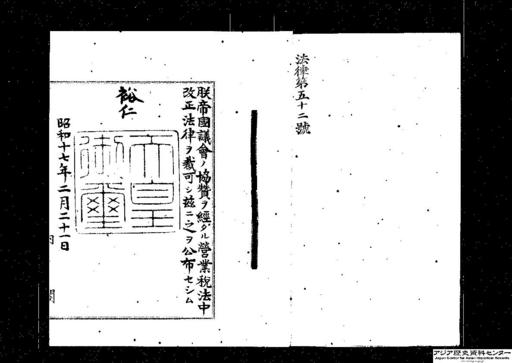 法律第五十二號
朕帝國議會ノ協贊ヲ經タル營業稅法中
改正法律ヲ裁可シ玆ニ之ヲ公布セシム
裕仁
天皇御璽
昭和十七年二月二十一日
アジア歴史資料センター
Japan Center for Asian Historical Records